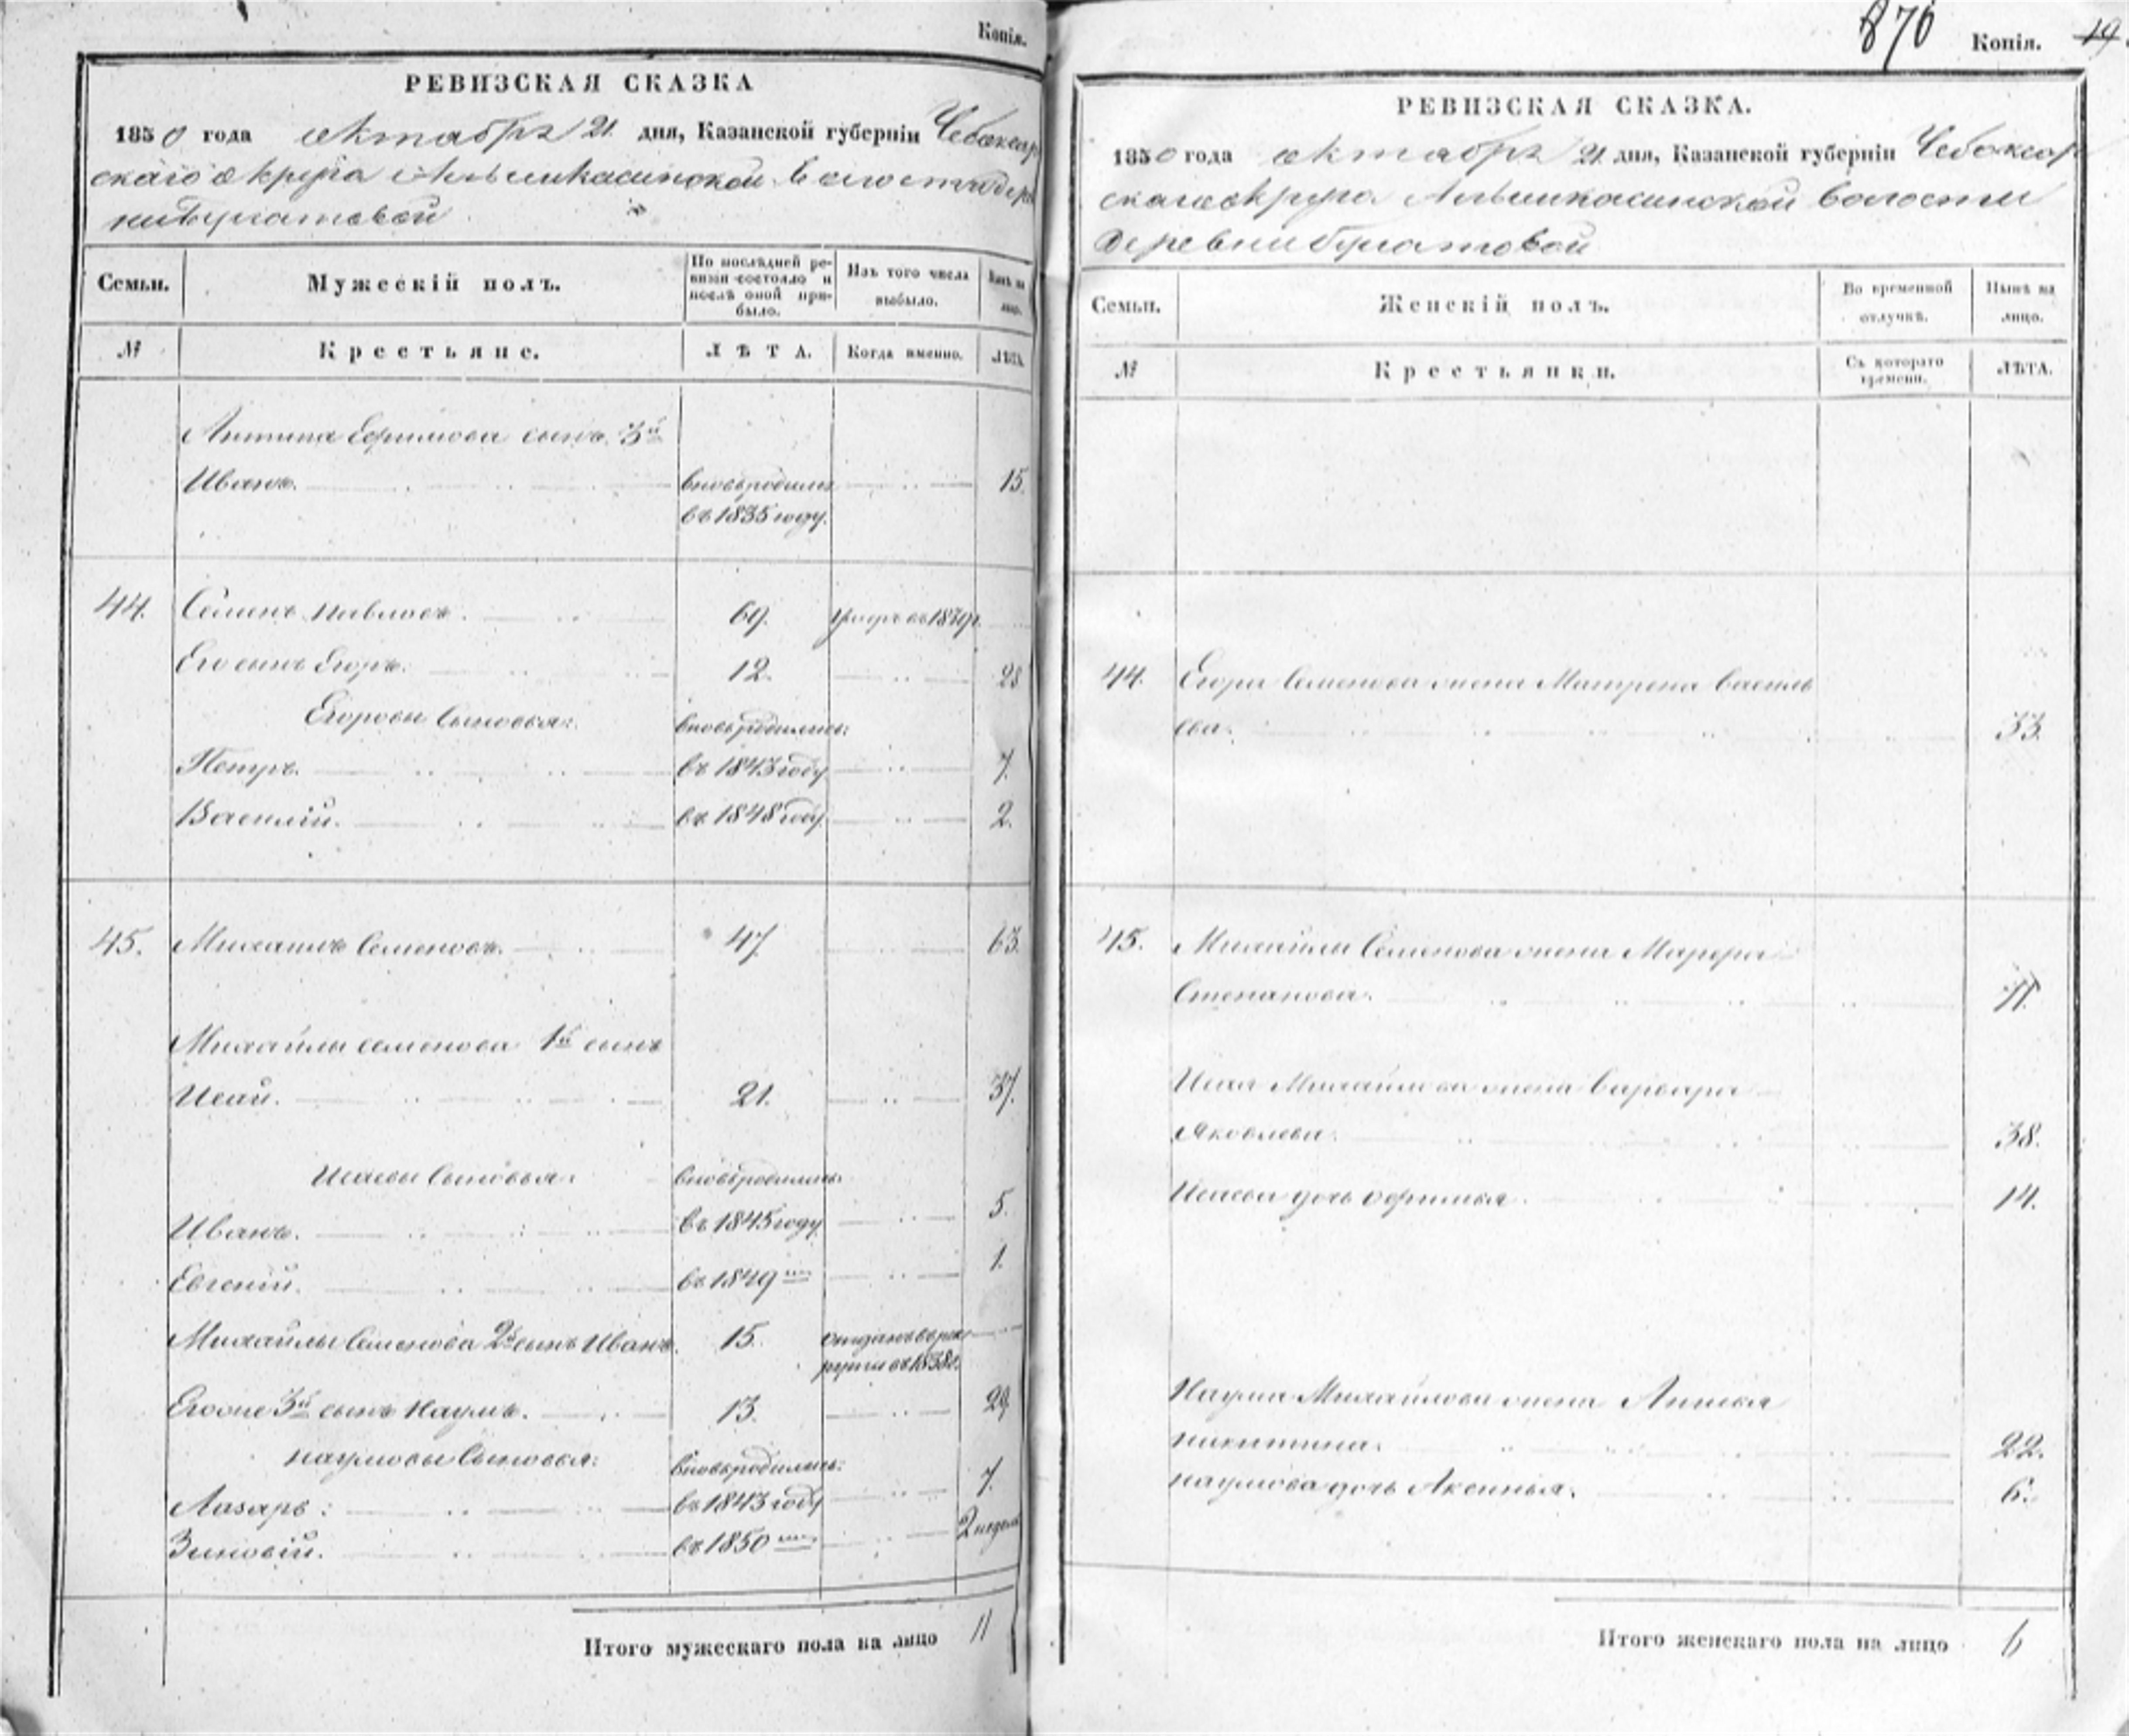 Копія.
РЕВИЗСКАЯ СКАЗКА
1850 года октября 21 дня, Казанской губерніи Чебоксар
скаго округа Алымкасинской волости дерев
ни Булатовой
Семьи. Мужескій полъ. По послѣдней ре- Изъ того числа Нынѣ на
визіи состояло и выбыло. лицо.
послѣ оной при-
было.
№ Крестьяне. ЛѢТА. Когда именно. ЛѢТА.
Антипа Ефимова сынъ 3й
Иванъ. вновь родился 15.
въ 1835 году.
44. Семенъ Павловъ. 69. умеръ въ
Его сынъ Егоръ. 12. 28
Егоровы сыновья: вновь родились:
Петръ. въ 1843 году 7.
Василій. въ 1848 году 2.
45. Михаилъ Семеновъ. 47. 63.
Михайлы Семенова 1й сынъ
Исай. 21. 37.
Исаевы сыновья: вновь родились:
Иванъ. въ 1845 году 5.
Евгеній. въ 1849 1.
Михайлы Семенова 2й сынъ Иванъ. 15. отданъ въ рек
руты въ 1838г.
Его же 3й сынъ Наумъ. 13. 29
Наумовы сыновья: вновь родились:
Лазарь: въ 1843 году 7.
Зиновій. въ 1850 2 недель
Итого мужескаго пола на лицо 11
876 Копія. 19.
РЕВИЗСКАЯ СКАЗКА.
1850 года октября 21 дня, Казанской губерніи Чебоксар
скаго округа Алымкасинской волости
деревни Булатовой
Семьи. Женскій полъ. Во временной Нынѣ на
отлучкѣ. лицо.
№ Крестьянки. Съ котораго ЛѢТА.
времени.
44. Егора Семенова жена Матрена Василь
ева. 33.
45. Михайлы Семенова жена Марфа
Степанова.
Исая Михайлова жена Варвара
Яковлева. 38.
Исаева дочь Офимья. 14.
Наума Михайлова жена
Никитина. 22.
Наумова дочь Аксинья. 6.
Итого женскаго пола на лицо 6